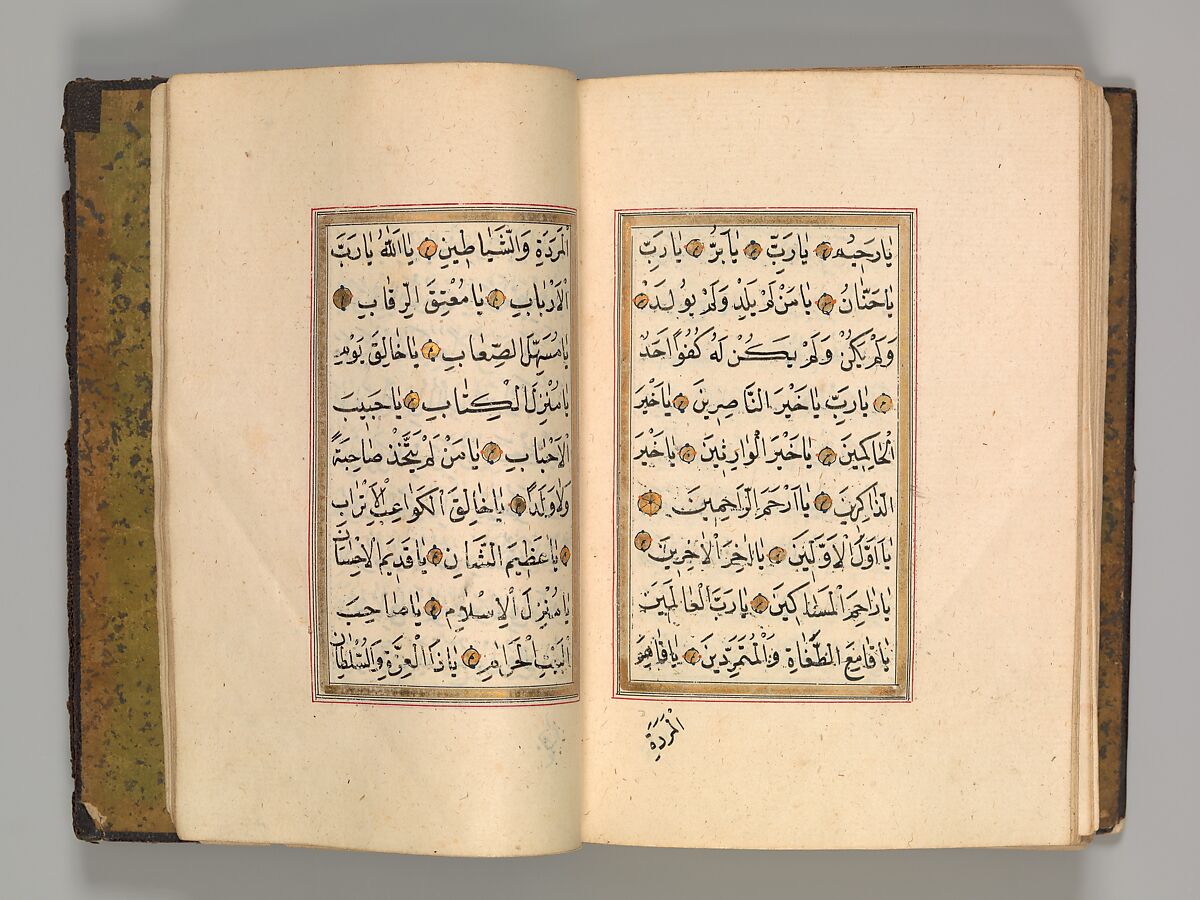 يَا رَحِيمُ يَا رَبِّ يَا بَرُّ يَا رَبِّ
يَا حَنَّانُ يَا مَنْ لَمْ يَلِدْ وَلَمْ يُولَدْ
وَلَمْ يَكُنْ وَلَمْ يَكُنْ لَهُ كُفُوًا اَحَدٌ
يَا رَبِّ يَا خَيْرَ النَّاصِرِينَ يَا خَيْرَ
الْحَاكِمِينَ يَا خَيْرَ الْوَارِثِينَ يَا خَيْرَ
الذَّاكِرِينَ يَا اَرْحَمَ الرَّاحِمِينَ
يَا اَوَّلَ الْاَوَّلِينَ يَا اٰخِرَ الْاٰخِرِينَ
يَا رَاحِمَ الْمَسَاكِينَ يَا رَبَّ الْعَالَمِينَ
يَا قَامِعَ الطُّغَاةِ وَالْمُتَمَرِّدِينَ يَا قَاهِرَ
الْمَرَدَةِ
الْمَرَدَةِ وَالشَّيَاطِينِ يَا اَللّٰهُ يَا رَبَّ
الْاَرْبَابِ يَا مُعْتِقَ الرِّقَابِ
يَا مُسَهِّلَ الصِّعَابِ يَا خَالِقَ يَوْمِ
يَا مُنْزِلَ الْكِتَابِ يَا حَبِيبَ
الْاَحْبَابِ يَا مَنْ لَمْ يَتَّخِذْ صَاحِبَةً
وَلَا وَلَدًا يَا خَالِقَ الْكَوَاعِبِ الْاَتْرَابِ
يَا عَظِيمَ الشَّانِ يَا قَدِيمَ الْاِحْسَانِ
يَا مُنْزِلَ الْاِسْلَامِ يَا صَاحِبَ
الْبَيْتِ الْحَرَامِ يَا ذَا الْعِزَّةِ وَالسُّلْطَانِ